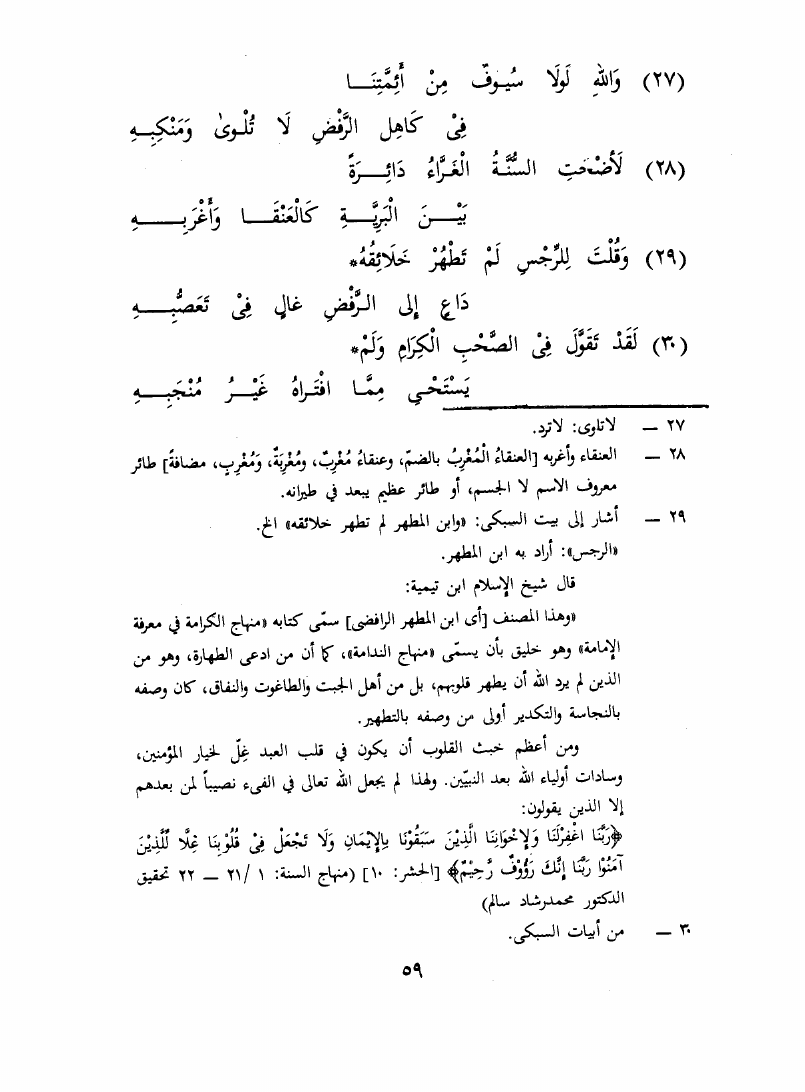 (٢٧) وَاللهِ لَولَا سُيُوفٌ مِنْ أَئِمَّتِنَـــا
فِىْ كَاهِلِ الرَّفْضِ لَا تُلْـوىٰ وَمَنْكِبِـــهِ
(٢٨) لَأَضْحَتِ السُّنَّـةُ الْغَـرَّاءُ دَائِـــرَةً
بَيْـــنَ الْبَرِيَّـــةِ كَالْعَنْقَـــا وَأَغْرَبِـــــهِ
(٢٩) وَقُلْتَ لِلرِّجْسِ لَمْ تَطْهُرْ خَلَائِقُهُ*
دَاعٍ إِلى الـرَّفْضِ غالٍ فِىْ تَعَصُّبِـــهِ
(٣٠) لَقَدْ تَقَوَّلَ فِىْ الصَّحْبِ الْكِرَامِ وَلَمْ*
يَسْتَحْـىِ مِمَّـا افْتَـراهُ غَيْـــرُ مُنْجَبِـــهِ
٢٧ — لاتلوى: لاترد.
٢٨ — العنقاء وأغربه [العنقاءُ الْمُغْرِبُ بالضمّ، وعنقاءُ مُغْرِبٌ، ومُغْرِبَةٌ، وَمُغْرِبٍ، مضافةً] طائر
معروف الاسم لا الجسم، أو طائر عظيم يبعد في طيرانه.
٢٩ — أشار إلى بيت السبكى: «وابن المطهر لم تطهر خلائقه» الخ.
«الرجس»: أراد به ابن المطهر.
قال شيخ الإسلام ابن تيمية:
«وهذا المصنف [أى ابن المطهر الرافضى] سمّى كتابه «منهاج الكرامة في معرفة
الإمامة» وهو خليق بأن يسمّى «منهاج الندامة»، كما أن من ادعى الطهارة، وهو من
الذين لم يرد الله أن يطهر قلوبهم، بل من أهل الجبت والطاغوت والنفاق، كان وصفه
بالنجاسة والتكدير أولى من وصفه بالتطهير.
ومن أعظم خبث القلوب أن يكون في قلب العبد غِلّ لخيار المؤمنين،
وسادات أولياء الله بعد النبيّين. ولهذا لم يجعل الله تعالى في الفىء نصيباً لمن بعدهم
إلا الذين يقولون:
﴿رَبَّنَا اغْفِرْلَنَا وَلِاِخْوَانِنَا الَّذِيْنَ سَبَقُوْنَا بِالْاِيْمَانِ وَلَا تَجْعَلْ فِىْ قُلُوْبِنَا غِلًّا لِّلَّذِيْنَ
آمَنُوْا رَبَّنَا إِنَّكَ رَؤُوْفٌ رَّحِيْمٌ﴾ [الحشر: ١٠] (منهاج السنة: ١ /٢١ — ٢٢ تحقيق
الدكتور محمدرشاد سالم)
٣٠ — من أبيات السبكى.
٥٩